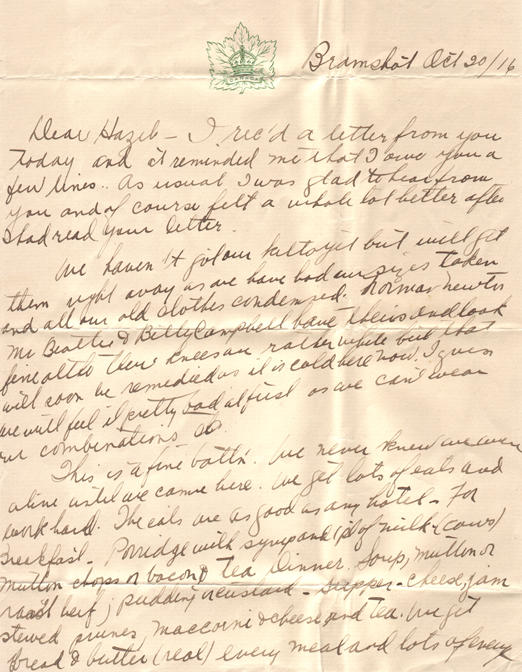 CANADA
Bramshot Oct 20/16
Dear Hazel - I rec'd a letter from you
today and it reminded me that I owe you a
few lines. As usual I was glad to hear from
you and of course felt a whole lot better after
I had read your letter.
We haven't got our kilts yet but will get
them right away as we have had our sizes taken
and all our old clothes condemned. Norman Newton
Mc Beattie & Billy Campbell have theirs and look
fine altho their knees are rather white but that
will soon be remedied as it is cold here now. I guess
we will feel it pretty bad at first as we can't wear
our combinations
This is a fine batt'n. We never knew we were
alive until we came here. We get lots of eats and
work hard. The eats are as good as any hotel - For
Breakfast - Porridge with syrup and of milk (cows)
mutton chops or bacon & tea Dinner. Soup, mutton or
roast beef, pudding or custard - Supper - cheese, jam
stewed prunes, maccorni & cheese and tea. We get
Bread & butter (real) every meal and lots of every